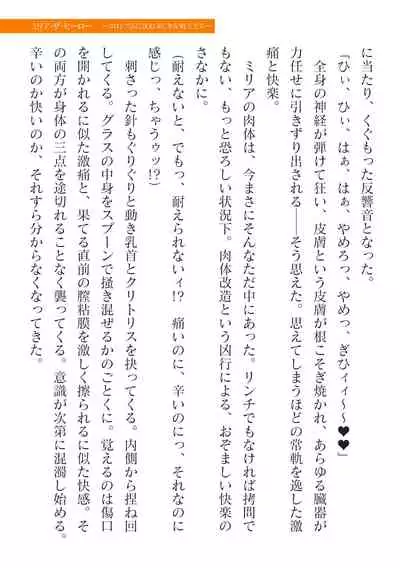 ミリア・ザ・ヒーロー
に当たり、くぐもった反響音となった。
「ひぃ、ひぃ、はぁ、はぁ、やめろっ、やめっ、ぎひィィ～～♥♥」
全身の神経が弾けて狂い、皮膚という皮膚が根こそぎ焼かれ、あらゆる臓器が
力任せに引きずり出される――そう思えた。思えてしまうほどの常軌を逸した激
痛と快楽。
ミリアの肉体は、今まさにそんなただ中にあった。リンチでもなければ拷問で
もない、もっと恐ろしい状況下。肉体改造という凶行による、おぞましい快楽の
さなかに。
（耐えないと、でもっ、耐えられないィ!? 痛いのに、辛いのにっ、それなのに
感じっ、ちゃうゥッ!?）
刺さった針もぐりぐりと動き乳首とクリトリスを抉ってくる。内側から捏ね回
してくる。グラスの中身をスプーンで掻き混ぜるかのごとくに。覚えるのは傷口
を開かれるに似た激痛と、果てる直前の膣粘膜を激しく擦られるに似た快感。そ
の両方が身体の三点を途切れることなく襲ってくる。意識が次第に混濁し始める。
辛いのか快いのか、それすら分からなくなってきた。